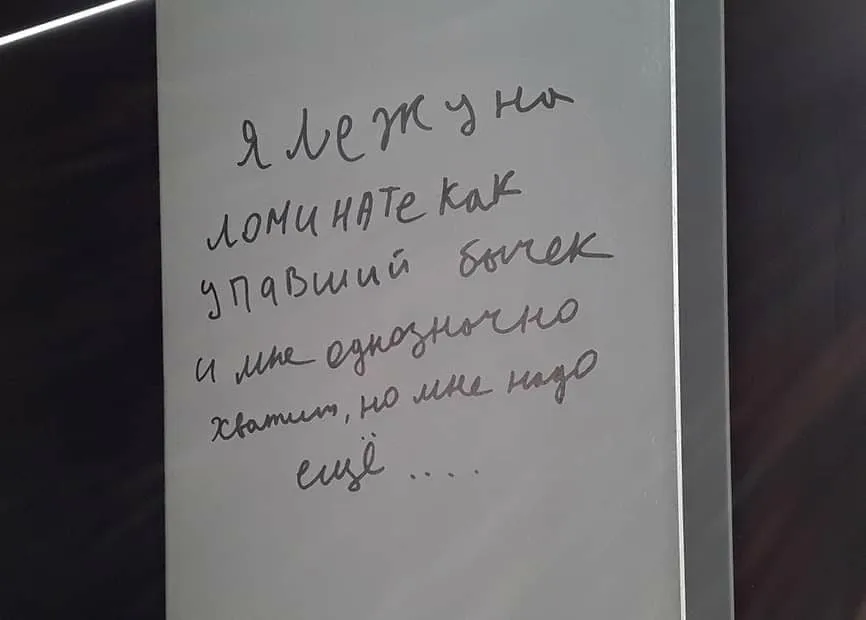 Я лежу на
ломинате как
упавший бычек
и мне однозночно
хватит, но мне надо
ещё ....